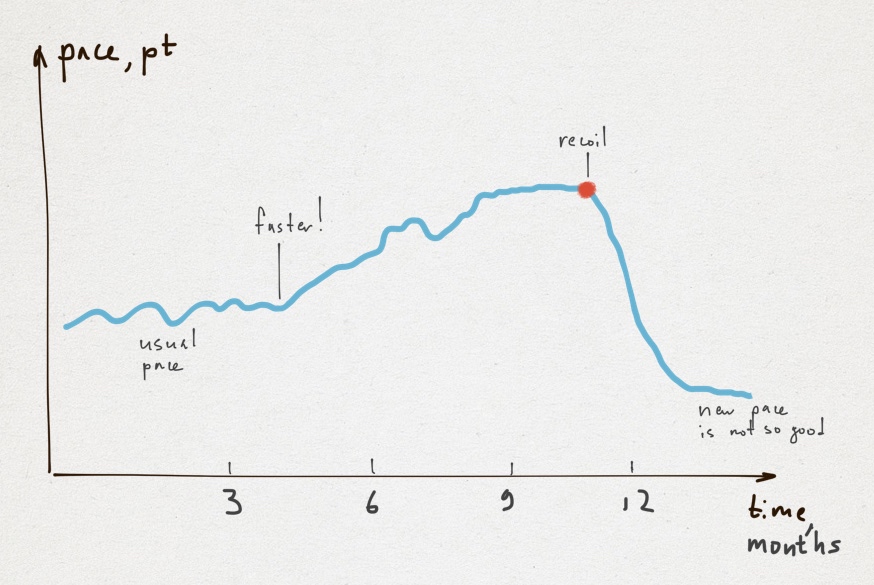 pace, pt
recoil
faster!
usual
pace
new pace
is not so good
3 6 9 12
time,
months